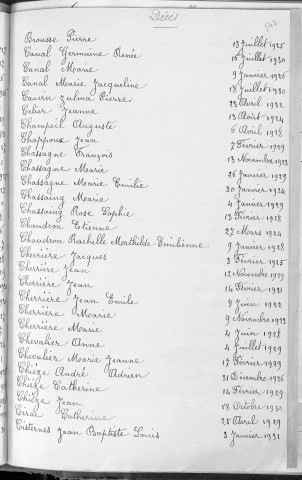 Décès
Brousse Pierre 13 Juillet 1925
Canal Germaine Renée 16 Juillet 1930
Canal Marie 9 Janvier 1926
Canal Marie Jacqueline 18 Juillet 1930
Cauvin Zulma Pierre 23 Avril 1932
Celier Jeanne 13 Août 1924
Champeil Auguste 6 Avril 1928
Chappoux Jean 7 Février 1929
Chassagne François 13 Novembre 1923
Chassagne Marie 26 Janvier 1929
Chassagne Marie Emilie 30 Janvier 1924
Chassaing Marie 4 Janvier 1929
Chassaing Rose Sophie 13 Février 1928
Chaudron Etienne 27 Mars 1924
Chaudron Rachelle Mathilde Emilienne 9 Janvier 1928
Cherrière Jacques 3 Février 1925
Cherrière Jean 12 Novembre 1929
Cherrière Jean 14 Février 1931
Cherrière Jean Emile 8 Juin 1922
Cherrière Marie 9 Novembre 1923
Cherrière Marie 4 Juin 1928
Chevalier Anne 4 Juillet 1929
Chevalier Marie Jeanne 17 Février 1929
Chièze André Adrien 31 Décembre 1926
Chièze Catherine 14 Février 1929
Chièze Jean 18 Octobre 1930
Cirac Catherine 25 Avril 1929
Cisternes Jean Baptiste Louis 3 Janvier 1931